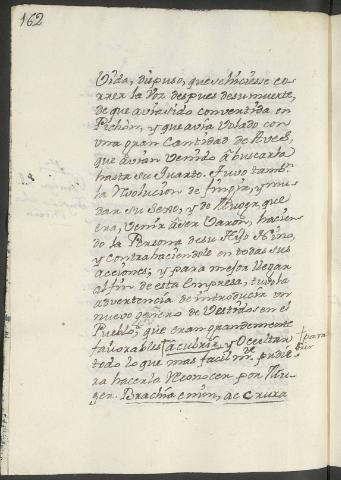 162
Vida, dispuso, que se hiciesse co-
rrer la Voz despues de su muerte,
de que avia sido convertida en
Pichón, y que avia Volado con
una gran Cantidad de Aves,
que avian Venido à buscarla
hasta su Quarto. Tuvo tambn.
la Revolucion de fingir, y mu-
dar su Sexo, y de Muger que
era, Venir à ser Varon, hacien-
do la Persona de su Hijo Nino,
y contrahaciendole en todas sus
acciones; y para mejor llegar
al fin de esta Empresa, tuvo la
advertencia de introducir un
nuevo genero de Vestidos en el
Pueblo, que eran grandemente
favorables à cubrir y Ocultar
para
todo lo que mas facilmte. pudie-
ra hacerla Reconocer por Mu-
ger. Brachia enim, ac Crura